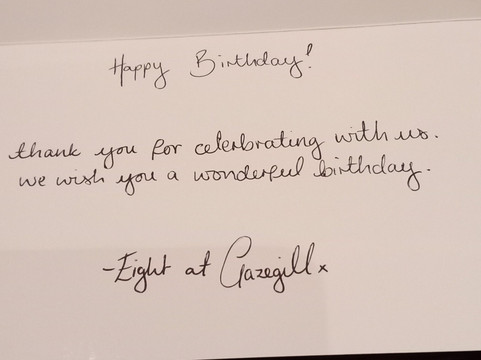 Happy Birthday!
thank you for celebrating with us.
we wish you a wonderful birthday.
-Eight at Gazegill x